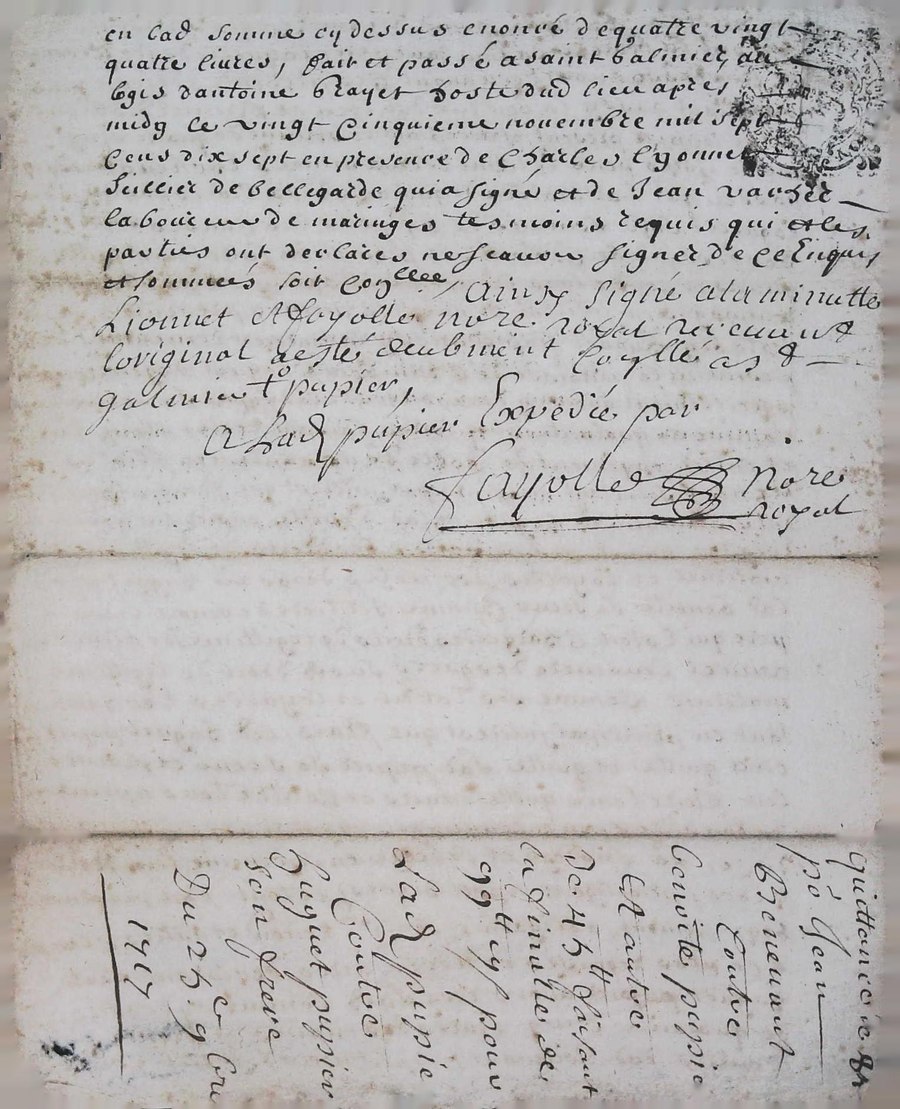 en lad somme cy dessus enoncé de quatre vingt
quatre livres, fait et passé a saint galmier, au
logis dantoine Brayet hoste dud lieu apres
midy le vingt cinquieme novembre mil sept
cens dix sept en presence de Charles lyonnet
sellier de bellegarde qui a signé et de Jean
laboureur de maringes tesmoins requis qui et les
parties ont declarés ne scavoir signer de ce Enquis
et sommés soit
ainsy signé a la minutte
Lionnet et fayolle nore royal recevant
loriginal a esté deubment a st
galmier pupier,
a Lad pupier Expedié par
fayolle nore
royal
quittance
po Jean
Benevant
Contre
benoite pupie
Et autre
De 45 tt faisant
la finalle de
99 tt pour
Lad pupie
Contre
huguet pupier
son frere
Du 25e 9bre
1717